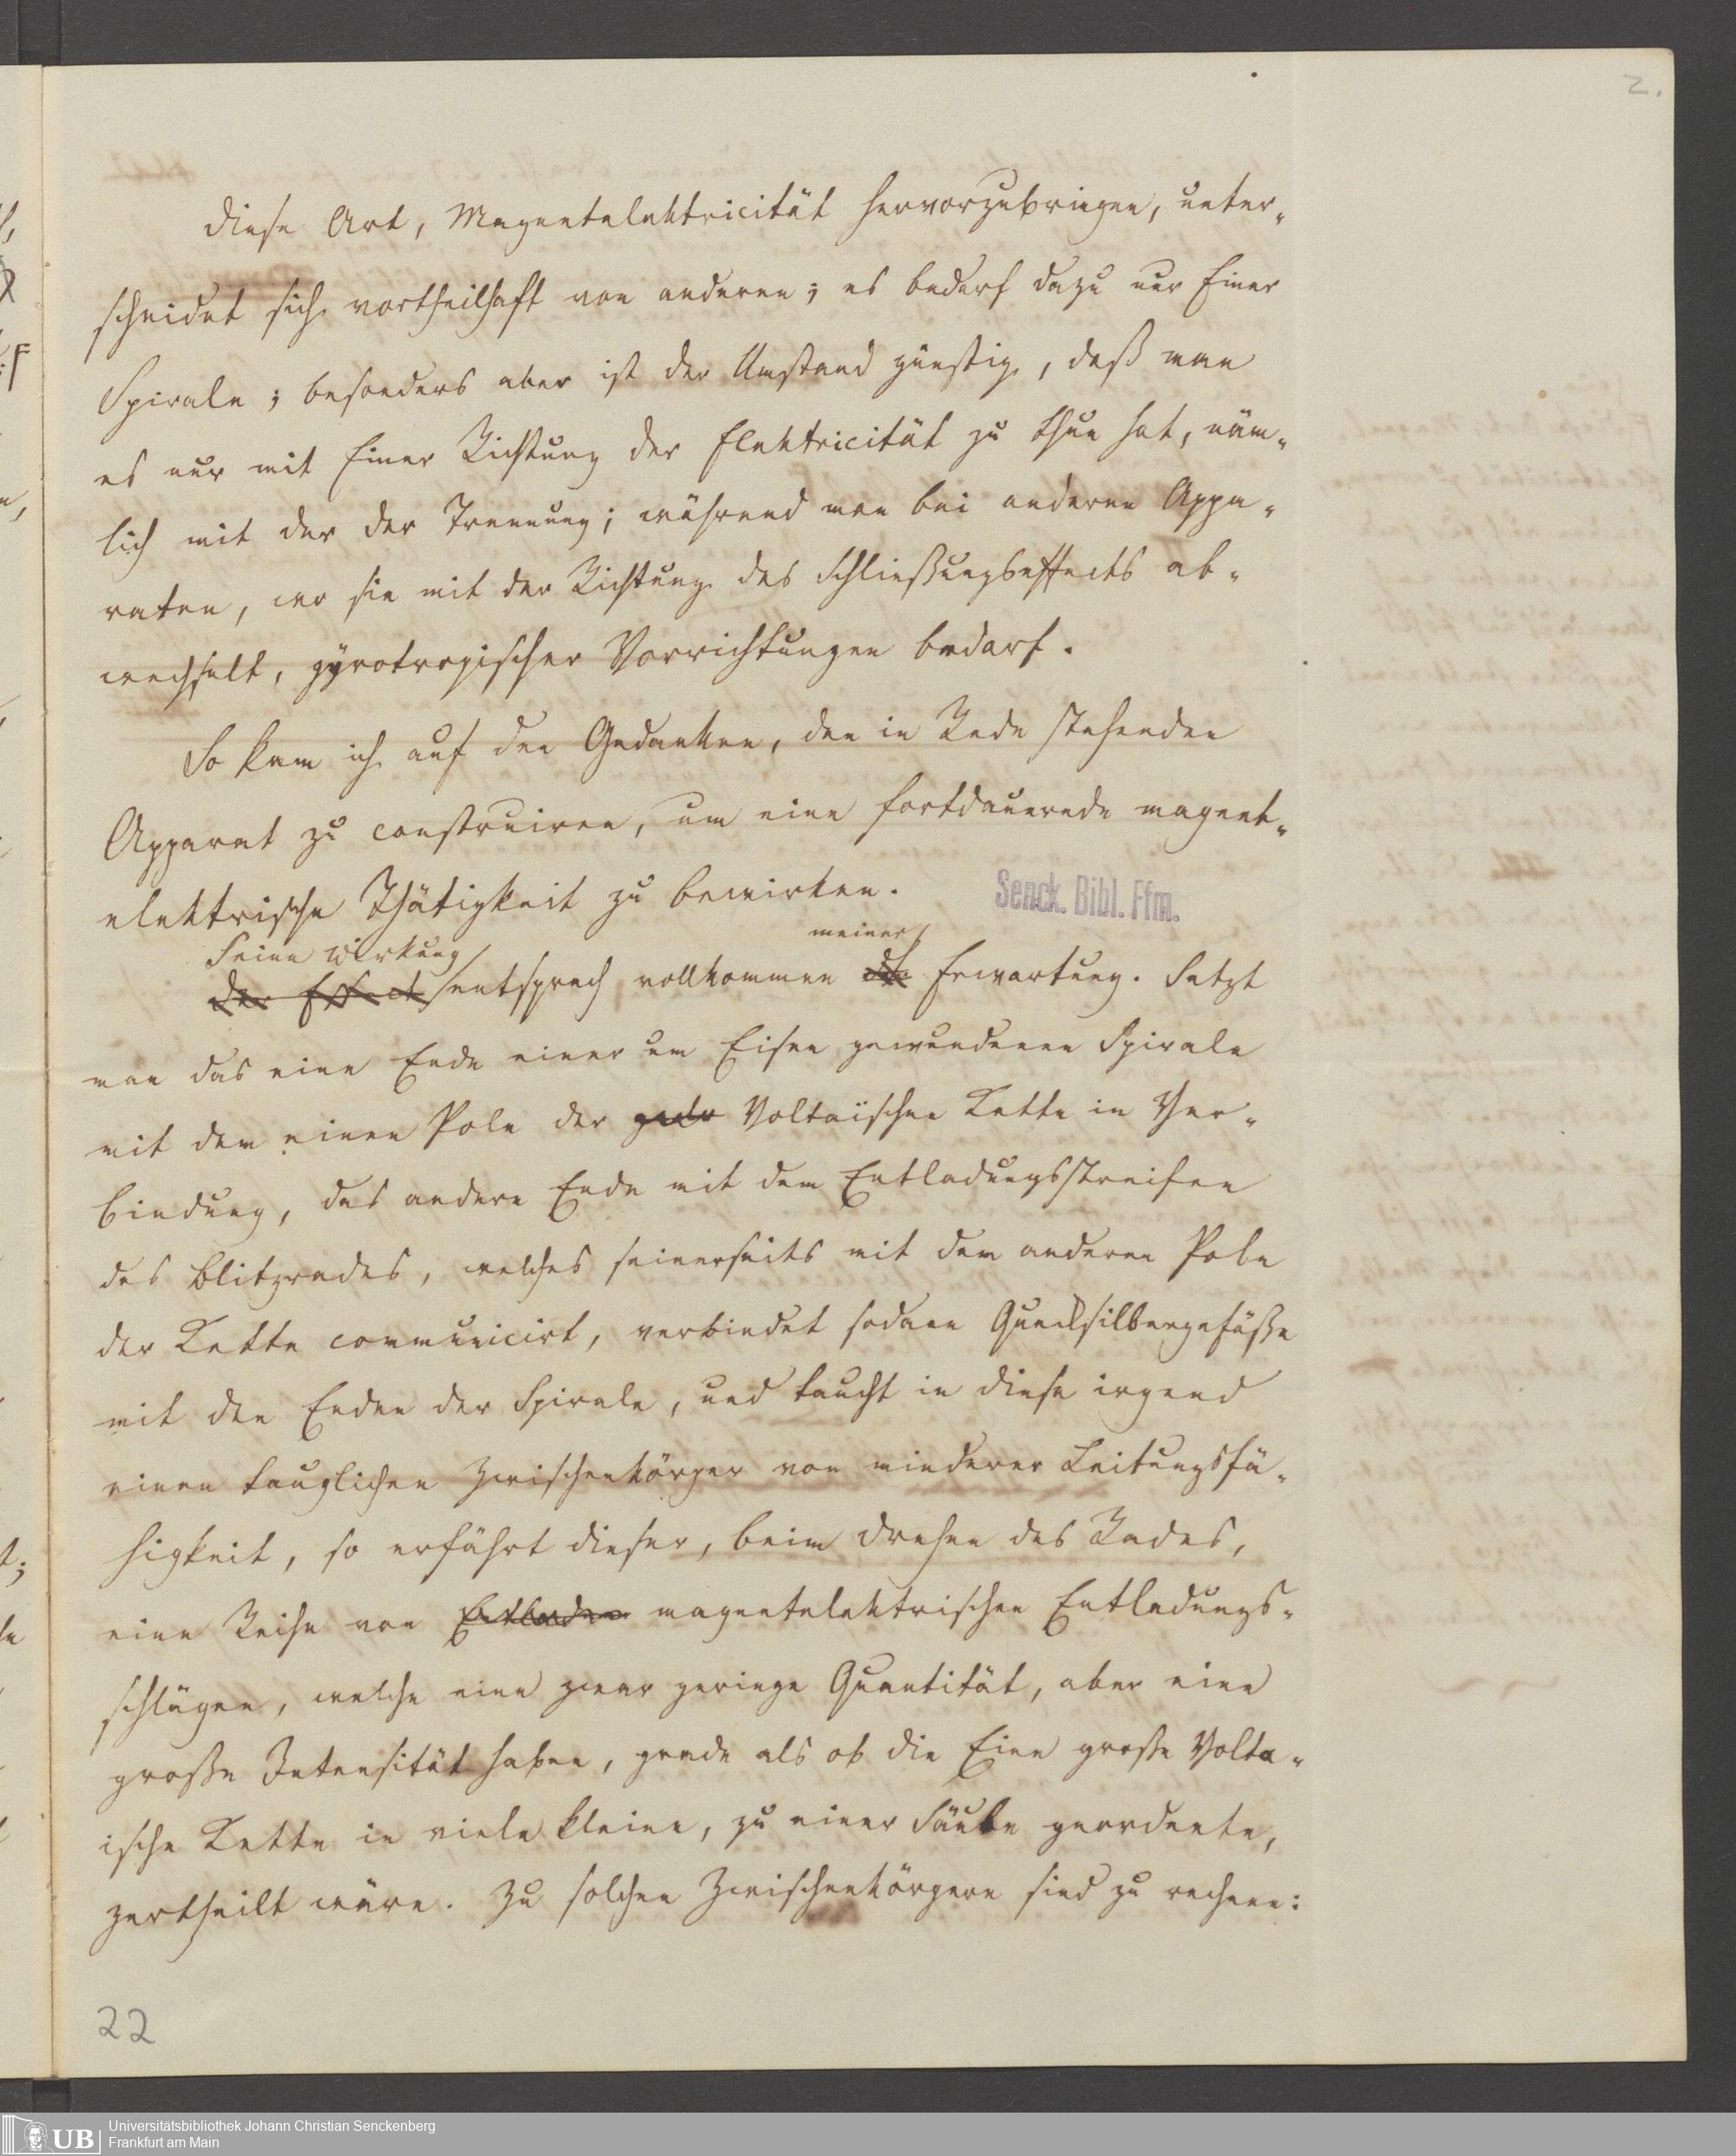 2.
Diese Art, Magnetelektricität hervorzubringen, unter-
scheidet sich vortheilhaft von anderen; es bedarf dazu nur Einer
Spirale; besonders aber ist der Umstand günstig, daß man
es nur mit Einer Richtung der Elektricität zu thun hat, näm-
lich mit der der Trennung; während man bei anderen Appa-
raten, wo sie mit der Richtung des Schließungseffects ab-
wechselt, gyrotropischer Vorrichtungen bedarf.
So kam ich auf den Gedanken, den in Rede stehenden
Apparat zu construiren, um eine fortdauernde magnet-
elektrische Thätigkeit zu bewirken.
Senck. Bibl. Ffm.
Seine Wirkung meiner
Der Effect entsprach vollkommen der Erwartung. Setzt
man das eine Ende einer um Eisen gewundenen Spirale
mit dem einen Pole der Voltaïschen Kette in Ver-
bindung, das andere Ende mit dem Entladungsstreifen
des Blitzrades, welches seinerseits mit dem anderen Pole
der Kette communicirt, verbindet sodann Quecksilbergefäße
mit den Enden der Spirale, und taucht in diese irgend
einen tauglichen Zwischenkörper von minderer Leitungsfä-
higkeit, so erfährt dieser, beim Drehen des Rades,
eine Reihe von Entladun magnetelektrischen Entladungs-
schlägen, welche eine zwar geringe Quantität, aber eine
große Intensität haben, grade als ob die Eine große Volta-
ische Kette in viele kleine, zu einer Säule geordnete,
zertheilt wäre. Zu solchen Zwischenkörpern sind zu rechnen:
22
UB
Universitätsbibliothek Johann Christian Senckenberg
Frankfurt am Main